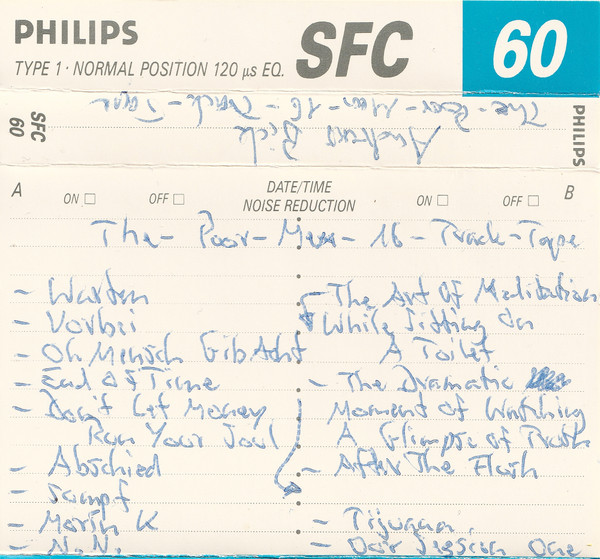 PHILIPS
SFC
60
TYPE 1 · NORMAL POSITION 120 µs EQ.
The-Poor-Man-16-Track-Tape
SFC
60
PHILIPS
A
ON
OFF
DATE/TIME
NOISE REDUCTION
ON
OFF
B
The-Poor-Man-16-Track-Tape
- Warten
- Vorbei
- Oh Mensch Gib Acht
- End Of Time
- Don't Let Money
Run Your Soul
- Abschied
- Sumpf
- Martin K
- N.N.
- The Art Of Meditation
While Sitting On
A Toilet
- The Dramatic
Moment of Watching
A Glimpse of Truth
- After The Flash
- Our Session One